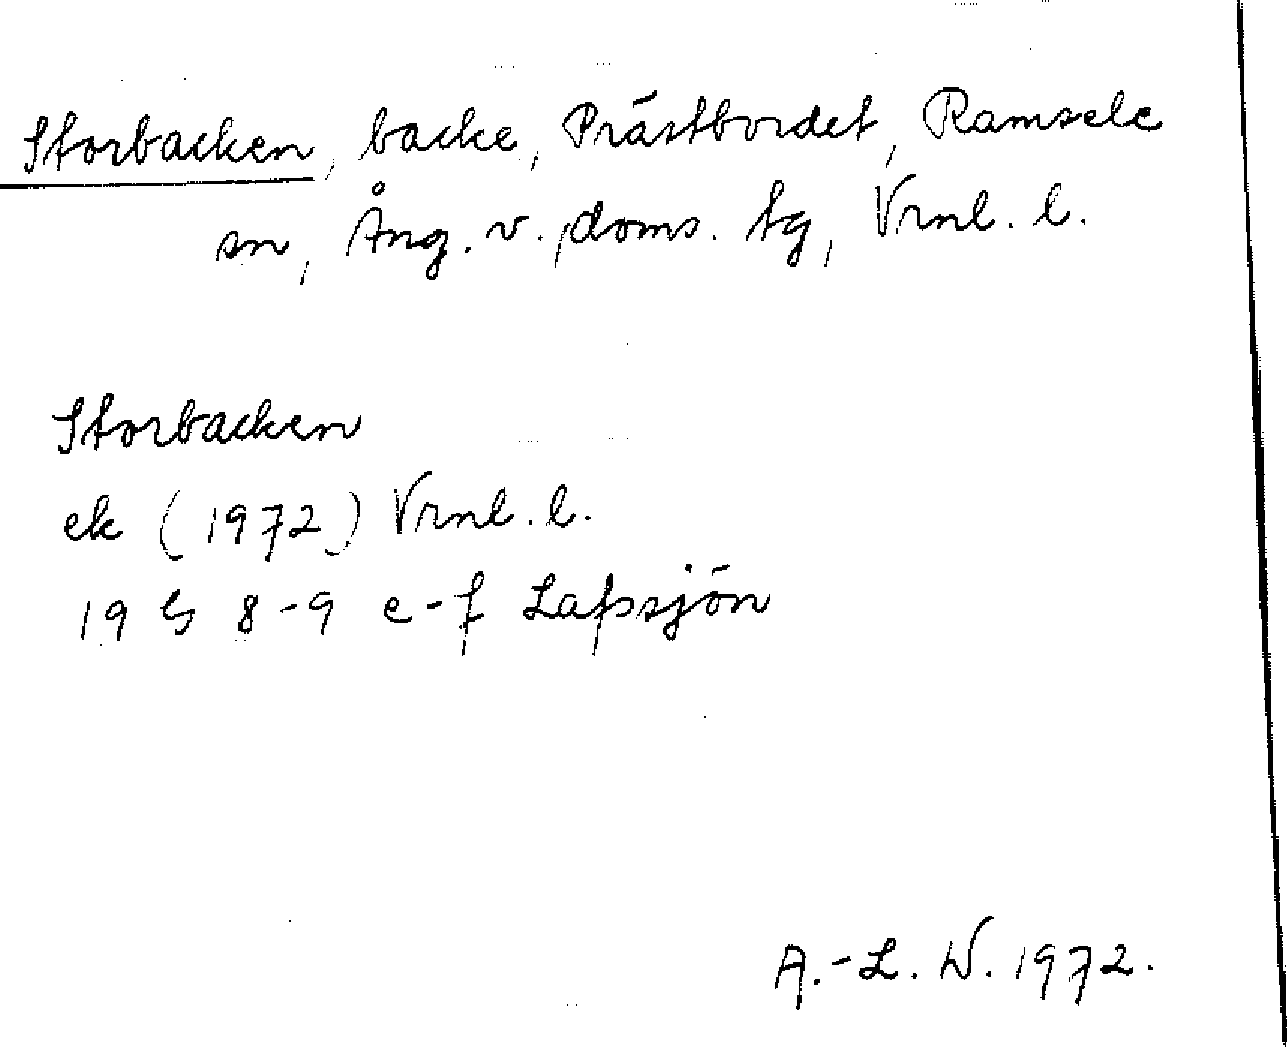 Storbacken, backe, Prästbordet, Ramsele
sn, Ång. v. doms. tg, Vrnl. l.
Storbacken
ek (1972) Vrnl. l.
19 G 8-9 e-f Lafssjön
A.-L. W. 1972.